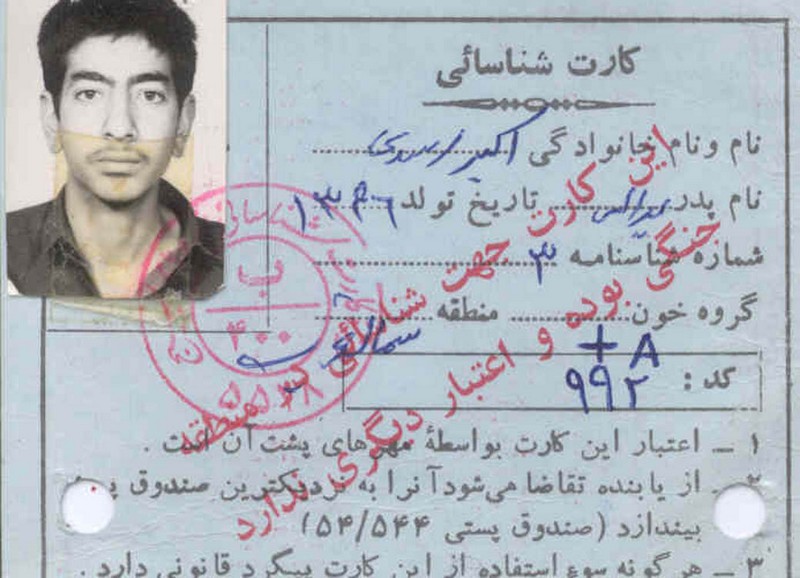 کارت شناسائی
نام و نام خانوادگی اکبر
نام پدر عباس تاریخ تولد ۱۳۴۶
شماره شناسنامه ۳
گروه خون A+ منطقه
کد : ۹۹۲
۱ ـ اعتبار این کارت بواسطهٔ مهرهای پشت آن است .
۲ ـ از یابنده تقاضا می‌شود آنرا به نزدیکترین صندوق
بیندازد (صندوق پستی ۵۴/۵۴۴)
۳ ـ هر گونه سوء استفاده از این کارت پیگرد قانونی دارد .
این کارت جهت شناسائی در منطقه
جنگی بوده و اعتبار دیگری ندارد
ب
۴۰۰